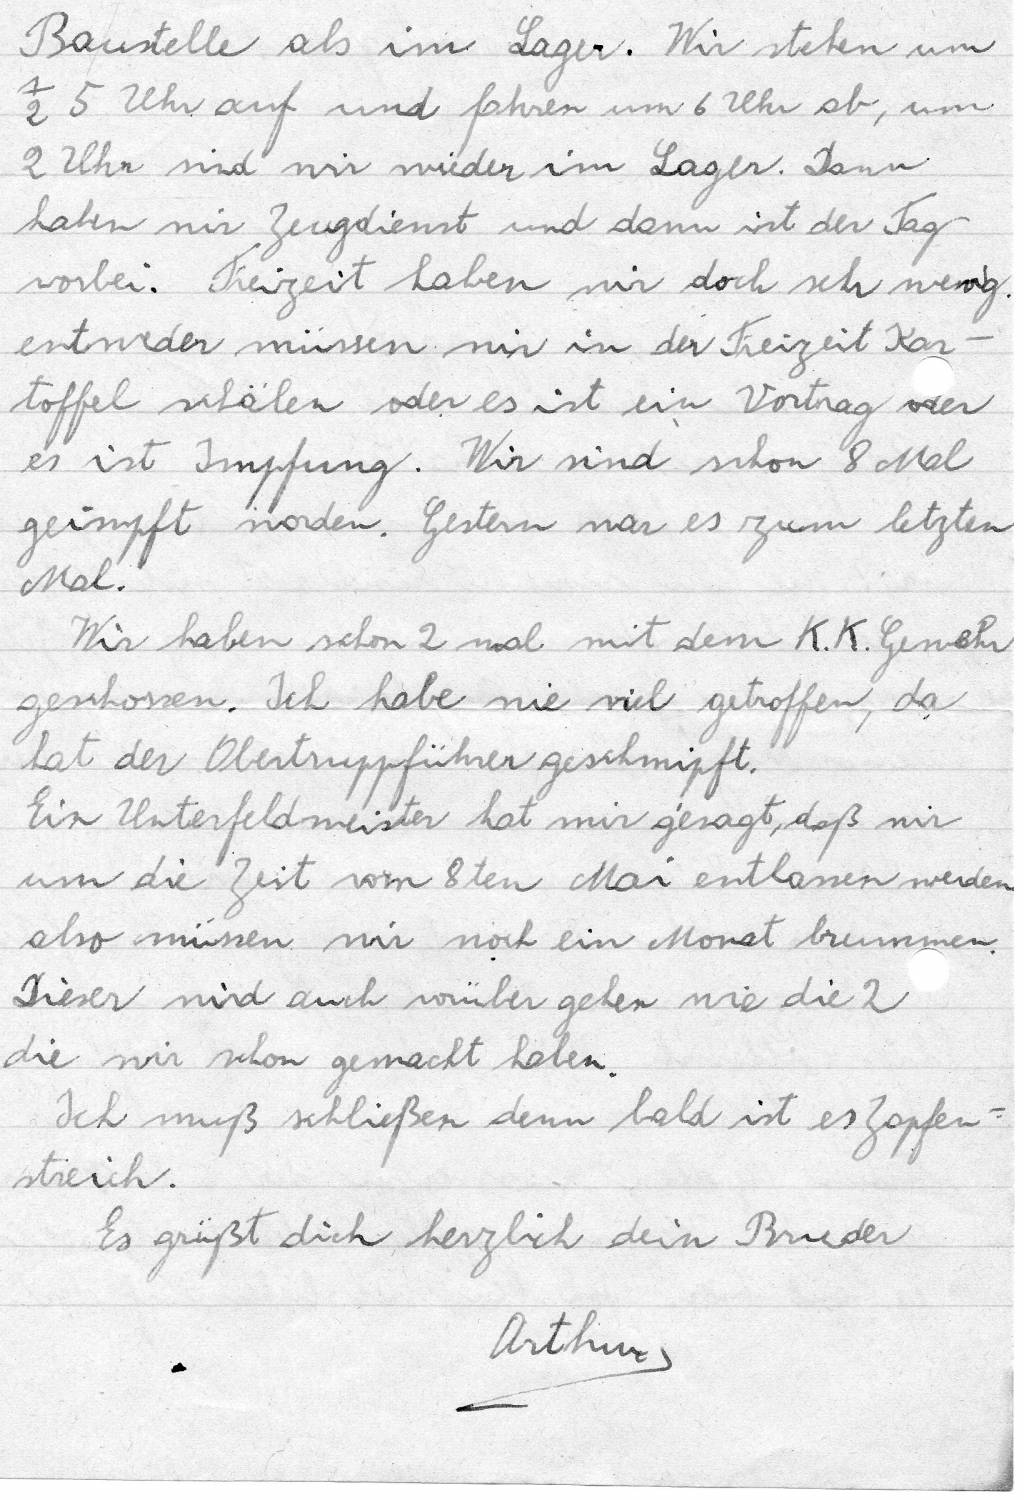 Baustelle als im Lager. Wir stehen um
1/2 5 Uhr auf und fahren um 6 Uhr ab, um
2 Uhr sind wir wieder im Lager. Dann
haben wir Zeugdienst und dann ist der Tag
vorbei. Freizeit haben wir doch sehr wenig.
entweder müssen wir in der Freizeit Kar-
toffel schälen oder es ist ein Vortrag oder
es ist Impfung. Wir sind schon 8 Mal
geimpft worden. Gestern war es zum letzten
Mal.
Wir haben schon 2 mal mit dem K.K. Gewehr
geschossen. Ich habe nie viel getroffen, da
hat der Obertruppführer geschmipft.
Ein Unterfeldmeister hat mir gesagt, daß wir
um die Zeit vom 8ten Mai entlassen werden
also müssen wir noch ein Monat brummen.
Dieser wird auch vorüber gehen wie die 2
die wir schon gemacht haben.
Ich muß schließen denn bald ist es Zapfen=
streich.
Es grüßt dich herzlich dein Bruder
Arthur